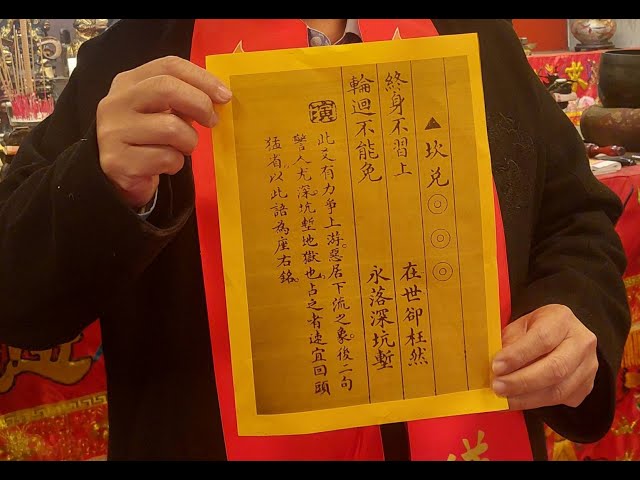 ▲坎兑◎◎◎
終身不習上 在世卻枉然
輪迴不能免 永落深坑塹
演
此爻有力爭上游。惡居下流之象。後二句
警人尤深。坑塹地獄也。占之者速宜回頭
猛省。以此語為座右銘。